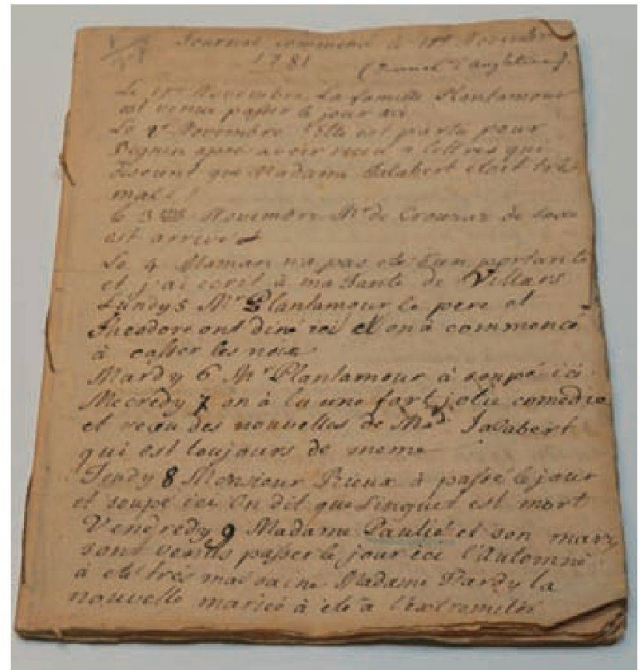 Journal commencé le 1er Novembre
1781
(Journal d'Angletere).
Le 1er Novembre La famille Plantamour
est venue passer le jour ici
Le 2e Novembre Elle est partie pour
après avoir recu 2 lettres qui
disoient que Madame Jalabert étoit très
mal
Le 3 Novembre Mr de Crousaz de
est arrivé
Le 4 Maman na pas été bien portante
et j'ai ecrit à ma Tante de Villars
Lundy 5 Mr Plantamour le pere et
Theodore ont diné ici et on à commencé
à casser les noix
Mardy 6 Mr Plantamour à soupé ici
Mecredy 7 on à lu une fort jolie comedie
et recu des nouvelles de Mad Jalabert
qui est toujours de meme
Jeudy 8 Monsieur Prieux à passé le jour
et soupé ici On dit que Linguet est mort
Vendredy 9 Madame Paulié et son mary
sont venus passer le jour ici l'Automne
à été très mal saine Madame Hardy la
nouvelle mariée à été à l'extremitée